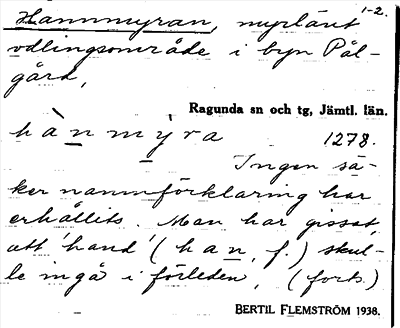 Hammmyran, myrlänt 1-2.
odlingsområde i byn Pål-
gård,
Ragunda sn och tg, Jämtl. län.
hànmỳra 1278.
Ingen sä-
ker namnförklaring har
erhållits. Man har gissat,
att 'hand' (han, f.) skul-
le ingå i förleden, (forts.)
BERTIL FLEMSTRÖM 1938.